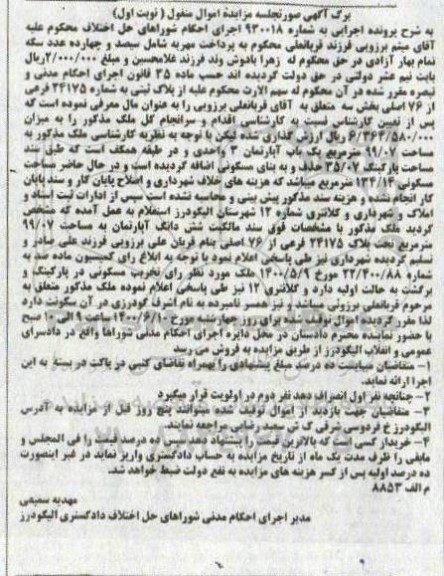 برگ آگهی صورتجلسه مزایده اموال منقول ( نوبت اول)
به شرح پرونده اجرایی به شماره ۹۳۰۰۱۸ اجرای احکام شوراهای حل اختلاف محکوم علیه
آقای میثم برزویی فرزند قربانعلی محکوم به پرداخت مهریه شامل سیصد و چهارده عدد سکه
تمام بهار آزادی در حق محکوم له زهرا بادوش وند فرزند غلامحسین و مبلغ ۲/۰۰۰/۰۰۰ریال
بابت نیم عشر دولتی در حق دولت گردیده اند حسب ماده ۳۵ قانون اجرای احکام مدنی و
تبصره مقرر شده در آن محکوم له سهم الارث محکوم علیه از پلاک ثبتی به شماره ۲۴۱۷۵ فرعی
از ۷۶ اصلی بخش سه متعلق به آقای قربانعلی برزویی را به عنوان مال معرفی نموده است که
پس از تعیین کارشناس نسبت به کارشناسی اقدام و سرانجام کل ملک مذکور را به میزان
۶/۳۶۴/۵۸۰/۰۰۰ ریال ارزش گذاری شده لیکن با توجه به نظریه کارشناسی ملک مذکور به
مساحت ۹۹/۰۷ مترمربع یک باب آپارتمان ۳ واحدی و در طبقه همکف است که طبق سند
مساحت پارکینگ ۳۵/۰۷ حذف و به بنای مسکونی اضافه گردیده است و در حال حاضر مساحت
مسکونی ۱۳۴/۱۴ مترمربع میباشد که هزینه های خلاف شهرداری و اصلاح پایان کار و سند پایان
کار انجام نشده و هزینه سند مذکور پیش بینی و محاسبه نشده است سپس از ادارات ثبت اسناد و
املاک و شهرداری و کلانتری شماره ۱۲ شهرستان الیگودرز استعلام به عمل آمده که مشخص
گردید ملک مذکور با مشخصات فوق سند مالکیت شش دانگ آپارتمان به مساحت ۹۹/۰۷
مترمربع تحت پلاک ۲۴۱۷۵ فرعی از ۷۶ اصلی بنام قربان علی برزویی فرزند علی صادر و
تسلیم گردیده شهرداری نیز طی پاسخی اعلام نمود با توجه به ابلاغ رای کمیسیون ماده صد به
شماره ۲۲/۴۰۰/۸۸ مورخ ۱۴۰۰/۵/۹ ملک مورد نظر رای تخریب مسکونی در پارکینگ و
برگشت به حالت اولیه دارد و کلانتری ۱۲ نیز طی پاسخی اعلام نموده ملک مذکور متعلق به
مرحوم قربانعلی برزویی میباشد و نیز همسر نامبرده به نام اشرف گودرزی در آن سکونت دارد
لذا مقرر گردیده اموال توقیف شده برای روز چهارشنبه مورخ ۱۴۰۰/۶/۱۰ ساعت ۹ الی ۱۰ صبح
با حضور نماینده محترم دادستان در محل دایره اجرای احکام مدنی شوراها واقع در دادسرای
عمومی و انقلاب الیگودرز از طریق مزایده به فروش می رسد
۱- متقاضیان میبایست ده درصد مبلغ پیشنهادی را بهمراه تقاضای کتبی در پاکت در بسته به این
اجرا ارائه نماید.
۲- چنانچه نفر اول انصراف دهد نفر دوم در اولویت قرار میگیرد
۳- متقاضیان جهت بازدید از اموال توقیف شده میتوانند پنج روز قبل از مزایده به آدرس
الیگودرز خ فردوسی شرقی ک ش سعید رضایی مراجعه نمایند.
۴- خریدار کسی است که بالاترین قیمت را پیشنهاد دهد سپس ده درصد قیمت را فی المجلس و
مابقی را ظرف مدت یک ماه از تاریخ مزایده به حساب دادگستری واریز نماید در غیر اینصورت
ده درصد اولیه پس از کسر هزینه های مزایده به نفع دولت ضبط خواهد شد.
م الف ۸۸۵۳
مهدیه سمیعی
مدیر اجرای احکام مدنی شوراهای حل اختلاف دادگستری الیگودرز